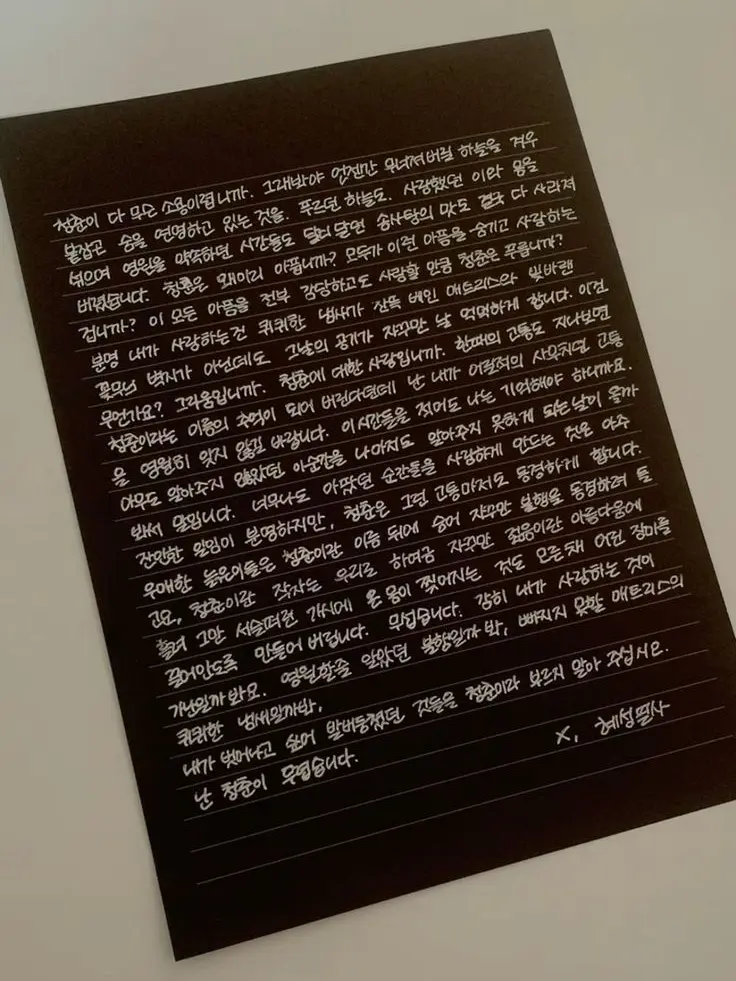 청춘이 다 무슨 소용이랍니까. 그래봐야 언젠간 무너져버릴 하늘을 겨우
붙잡곤 숨을 연명하고 있는 것을. 푸르던 하늘도. 사랑했던 이와 몸을
섞으며 영원을 약속하던 시간들도 달디 달던 솜사탕의 맛도 결국 다 사라져
버렸습니다. 청춘은 왜이리 아픕니까? 모두가 이런 아픔을 숨기고 사랑하는
겁니까? 이 모든 아픔을 전부 감당하고도 사랑할 만큼 청춘은 푸릅니까?
분명 내가 사랑하는건 퀴퀴한 냄새가 잔뜩 베인 매트리스와 빛바랜
꽃무늬 벽지가 아닌데도 그날의 공기가 자꾸만 날 먹먹하게 합니다. 이건
무언가요? 그리움입니까. 청춘에 대한 사랑입니까. 한때의 고통도 지나보면
청춘이라는 이름의 추억이 되어 버린다던데 난 내가 어릴적의 사무치던 고통
을 영원히 잊지 않길 바랍니다. 이 시간들을 적어도 나는 기억해야 하니까요.
아무도 알아주지 않았던 아순만을 나마저도 알아주지 못하게 되는 날이 올까
봐서 말입니다. 너무나도 아팠던 순간들을 사랑하게 만드는 것은 아주
잔인한 일임이 분명하지만, 청춘은 그런 고통마저도 동경하게 합니다.
우매한 늙은이들은 청춘이란 이름 뒤에 숨어 자꾸만 불행을 동경하려 들
고요, 청춘이란 작자는 우리로 하여금 자꾸만 젊음이란 아름다움에
홀려 그만 서슬퍼런 가시에 온 몸이 찢어지는 것도 모른채 어린 장미를
끌어안도록 만들어 버립니다. 무섭습니다. 감히 내가 사랑하는 것이
가난일까 봐요. 영원할줄 알았던 불행일까 봐, 빠지지 못할 매트리스의
퀴퀴한 냄새일까봐,
내가 벗어나고 싶어 발버둥쳤던 것들을 청춘이라 부르지 말아 주십시오.
난 청춘이 무섭습니다.
X, 혜성필사